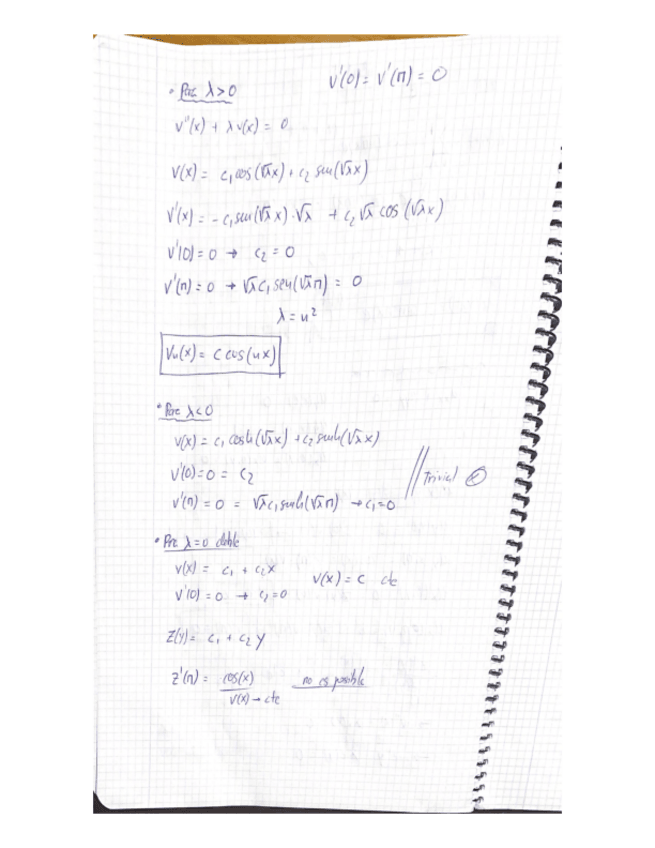 • Para λ>0 v'(0) = v'(π) = 0
v''(x) + λ v(x) = 0
v(x) = c₁ cos(√λ x) + c₂ sen(√λ x)
v'(x) = - c₁ sen(√λ x)·√λ + c₂ √λ cos(√λ x)
v'(0) = 0 → c₂ = 0
v'(π) = 0 → √λ c₁ sen(√λ π) = 0
λ = n²
Vn(x) = C cos(nx)
• Para λ<0
v(x) = c₁ cosh(√λ x) + c₂ senh(√λ x)
v'(0) = 0 = c₂
v'(π) = 0 = √λ c₁ senh(√λ π) → c₁ = 0 // Trivial
• Para λ=0 doble
v(x) = c₁ + c₂x v(x) = c cte
v'(0) = 0 → c₂ = 0
Z(y) = c₁ + c₂ y
Z'(π) = cos(x) no es posible
v(x) → cte